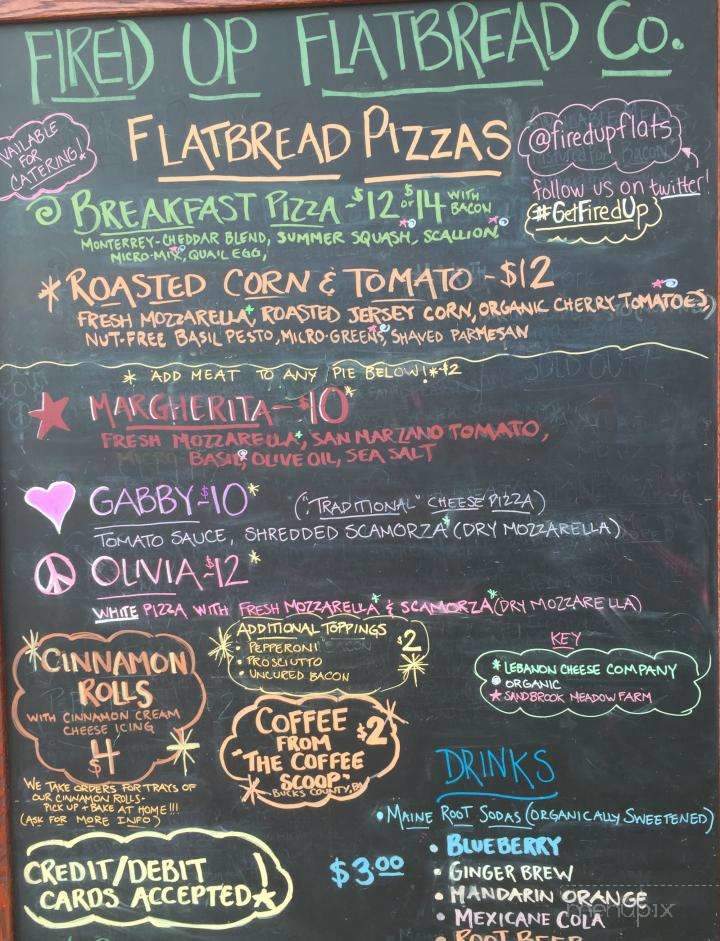 FIRED UP FLATBREAD Co.
VAILABLE
FOR
CATERING!
FLATBREAD PIZZAS
@firedupflats
follow us on twitter!
#GetFiredUp
BREAKFAST PIZZA - $12 or $14 WITH BACON
MONTERREY-CHEDDAR BLEND, SUMMER SQUASH, SCALLION,
MICRO-MIX, QUAIL EGG,
*ROASTED CORN & TOMATO - $12
FRESH MOZZARELLA*, ROASTED JERSEY CORN, ORGANIC CHERRY TOMATOES,
NUT-FREE BASIL PESTO, MICRO-GREENS, SHAVED PARMESAN
* ADD MEAT TO ANY PIE BELOW! * $2
MARGHERITA - $10*
FRESH MOZZARELLA*, SAN MARZANO TOMATO,
MICRO BASIL, OLIVE OIL, SEA SALT
GABBY - $10* ("TRADITIONAL" CHEESE PIZZA)
TOMATO SAUCE, SHREDDED SCAMORZA* (DRY MOZZARELLA)
OLIVIA - $12*
WHITE PIZZA WITH FRESH MOZZARELLA* & SCAMORZA* (DRY MOZZARELLA)
CINNAMON
ROLLS
WITH CINNAMON CREAM
CHEESE ICING
$4
WE TAKE ORDERS FOR TRAYS OF
OUR CINNAMON ROLLS-
PICK UP + BAKE AT HOME!!!
(ASK FOR MORE INFO)
ADDITIONAL TOPPINGS
$2
• PEPPERONI
• PROSCIUTTO
• UNCURED BACON
COFFEE $2
FROM
"THE COFFEE
SCOOP"
BUCKS COUNTY, PA
KEY
* LEBANON CHEESE COMPANY
ORGANIC
★ SANDBROOK MEADOW FARM
DRINKS
• MAINE ROOT SODAS (ORGANICALLY SWEETENED)
$3.00
• BLUEBERRY
• GINGER BREW
• MANDARIN ORANGE
• MEXICANE COLA
ROOT BEER
CREDIT/DEBIT
CARDS ACCEPTED!
menupix